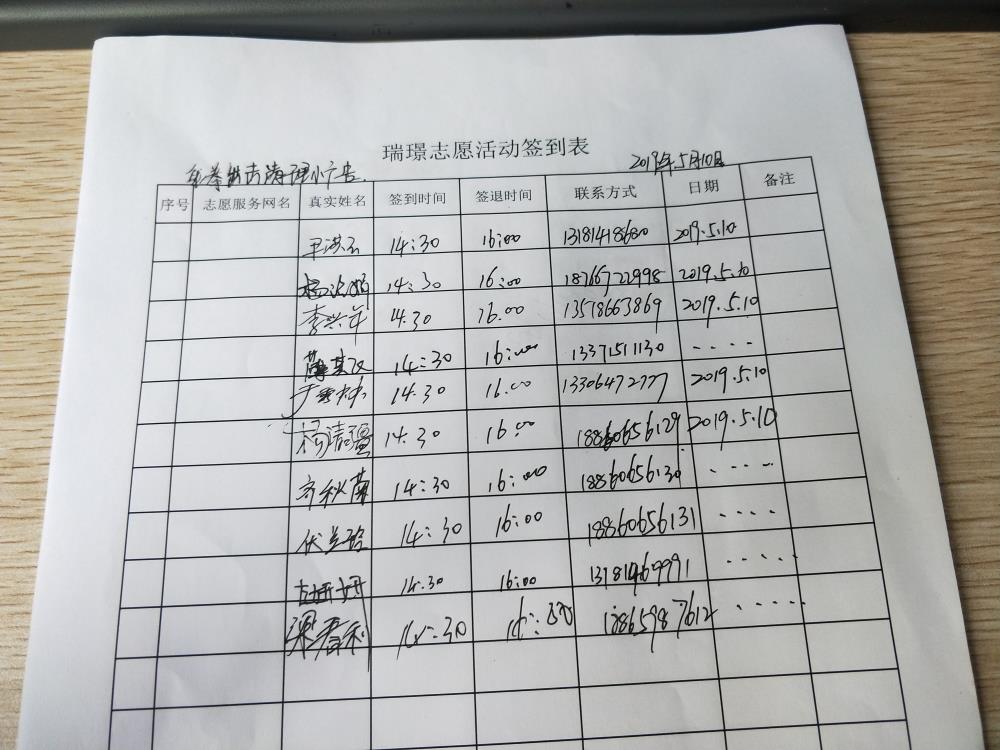 瑞璟志愿活动签到表
清理小广告
2019年5月10日
序号 志愿服务网名 真实姓名 签到时间 签退时间 联系方式 日期 备注
14:30 16:00 13181418680 2019.5.10
14:30 16:00 18766722998 2019.5.10
李兴年 14.30 16.00 13518663869 2019.5.10
14:30 16:00 13371511130 .....
14.30 16.00 13306472777 2019.5.10
杨清疆 14.30 16:00 18860656129 2019.5.10
齐秋菊 14:30 16:00 18860656130 .....
伏兰玲 14:30 16:00 18860656131 ....
14.30 16:00 .....
梁春利 14:30 18865987612 .....